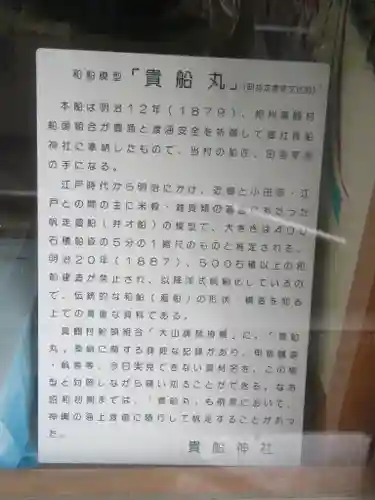 和船模型「貴船丸」
本船は明治12年(1879)、相州真鶴村
船頭組合が豊漁と渡海安全を祈願して当社貴船
神社に奉納したもので、当村の船匠、田
の手になる。
江戸時代から明治にかけ、近郷と小田原・江
戸との間の主に米穀・雑貨類の
帆走廻船(弁才船)の模型で、大きさは400
石積船の5分の1縮尺のものと推定される。
明治20年(1887)、500石積以上の和
船建造が禁止され、以降洋式帆船化しているの
で、伝統的な和船(廻船)の形状・構造を知る
上での貴重な資料である。
真鶴村船頭組合「大山講」に、「貴船
丸」に関する詳細な記録があり、
・等、今日実見できない資材名を、この模
型と対照しながら窺い知ることができる。なお
昭和初期までは、「貴船丸」も例祭において、
神輿の海上渡御に随行して帆走することがあっ
た。
貴船神社